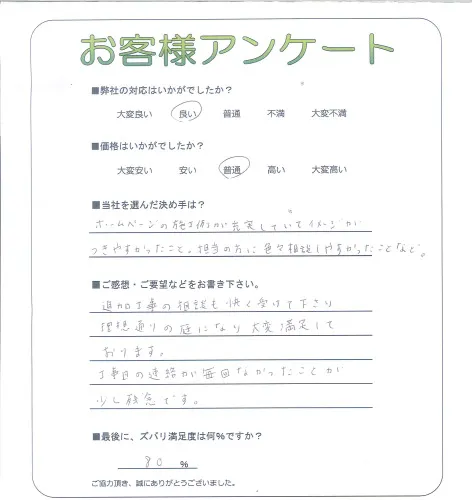 お客様アンケート
■弊社の対応はいかがでしたか？
大変良い　良い　普通　不満　大変不満
■価格はいかがでしたか？
大変安い　安い　普通　高い　大変高い
■当社を選んだ決め手は？
ホームページの施工例が充実していてイメージが
つきやすかったこと。担当の方に色々相談しやすかったことなど。
■ご感想・ご要望などをお書き下さい。
追加工事の相談も快く受けて下さり
理想通りの庭になり大変満足して
おります。
工事日の連絡が毎回なかったことが
少し残念です。
■最後に、ズバリ満足度は何％ですか？
80 %
ご協力頂き、誠にありがとうございました。